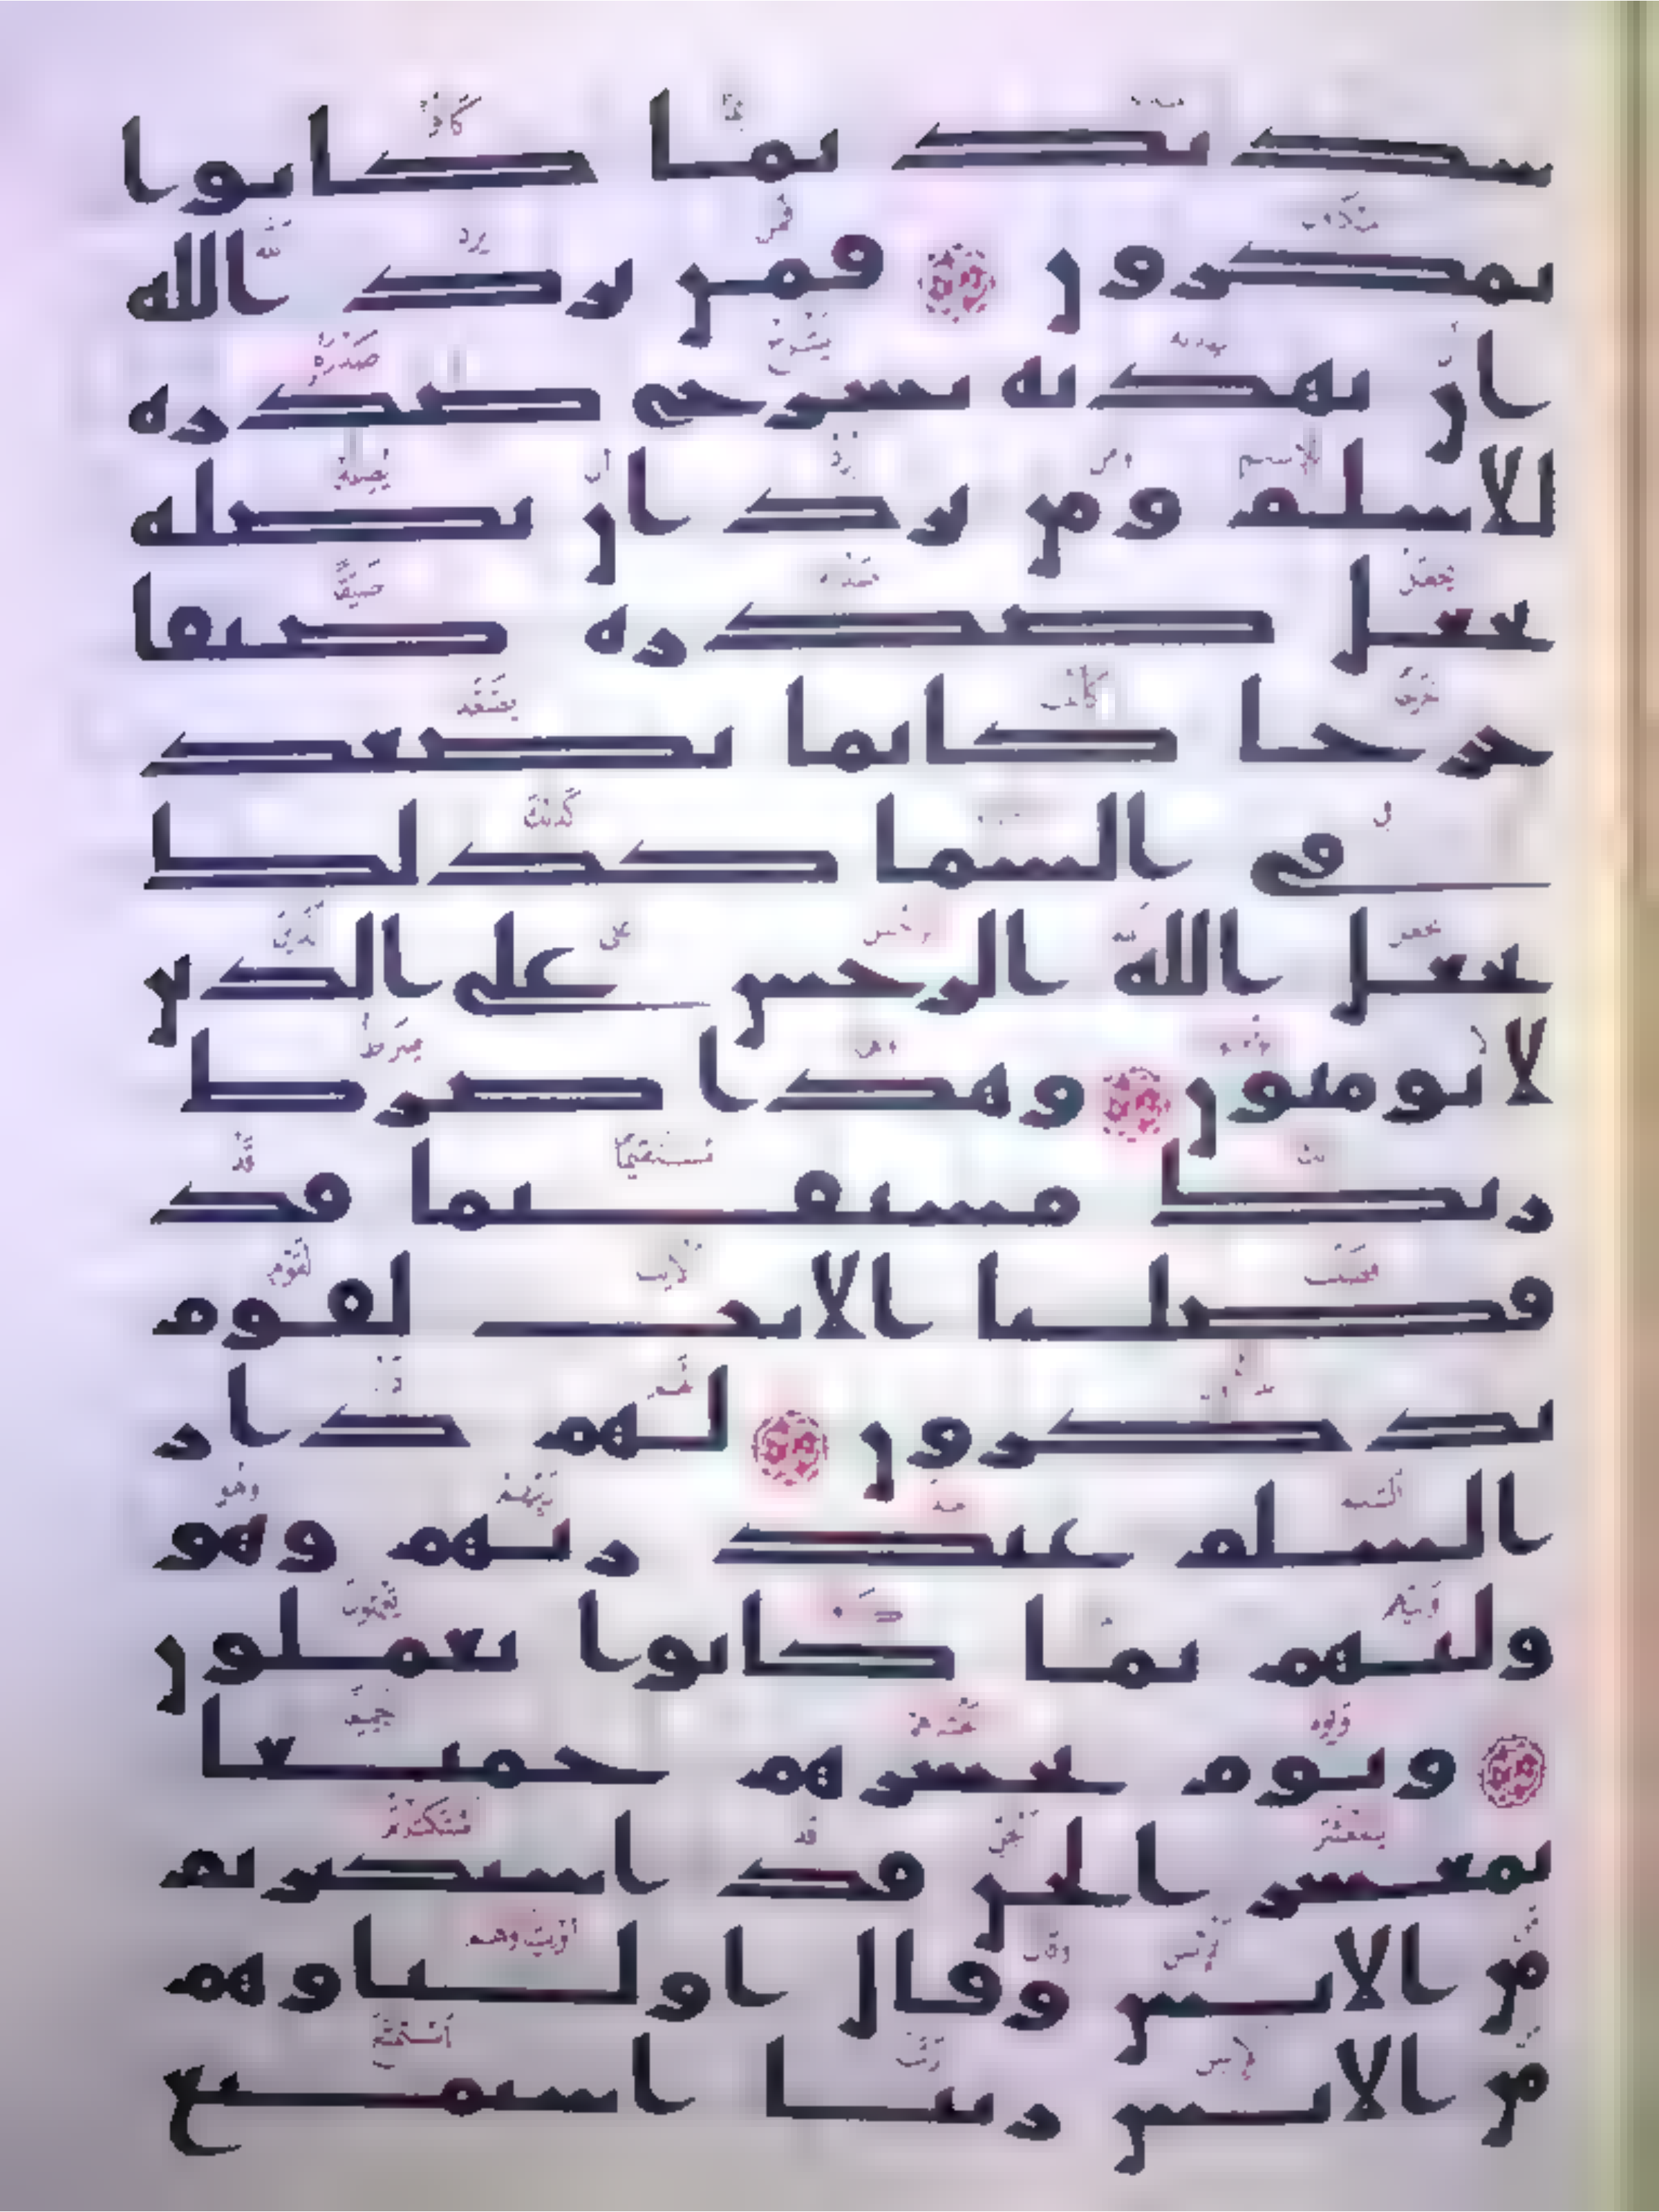 شديد بما كانوا
يمكرون فمن يرد الله
ان يهديه يشرح صدره
للاسلم ومن يرد ان يضله
يجعل صدره ضيقا
حرجا كانما يصعد
في السما كذلك
يجعل الله الرجس على الذين
لا يومنون وهذا صرط
ربك مستقيما قد
فصلنا الايت لقوم
يذكرون لهم دار
السلم عند ربهم وهو
وليهم بما كانوا يعملون
ويوم نحشرهم جميعا
يمعشر الجن قد استكثرتم
من الانس وقال اولياوهم
من الانس ربنا استمتع